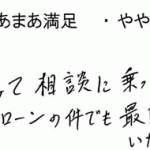 あまあ満足　・やや
って相談に乗っ
ローンの件でも最
いた